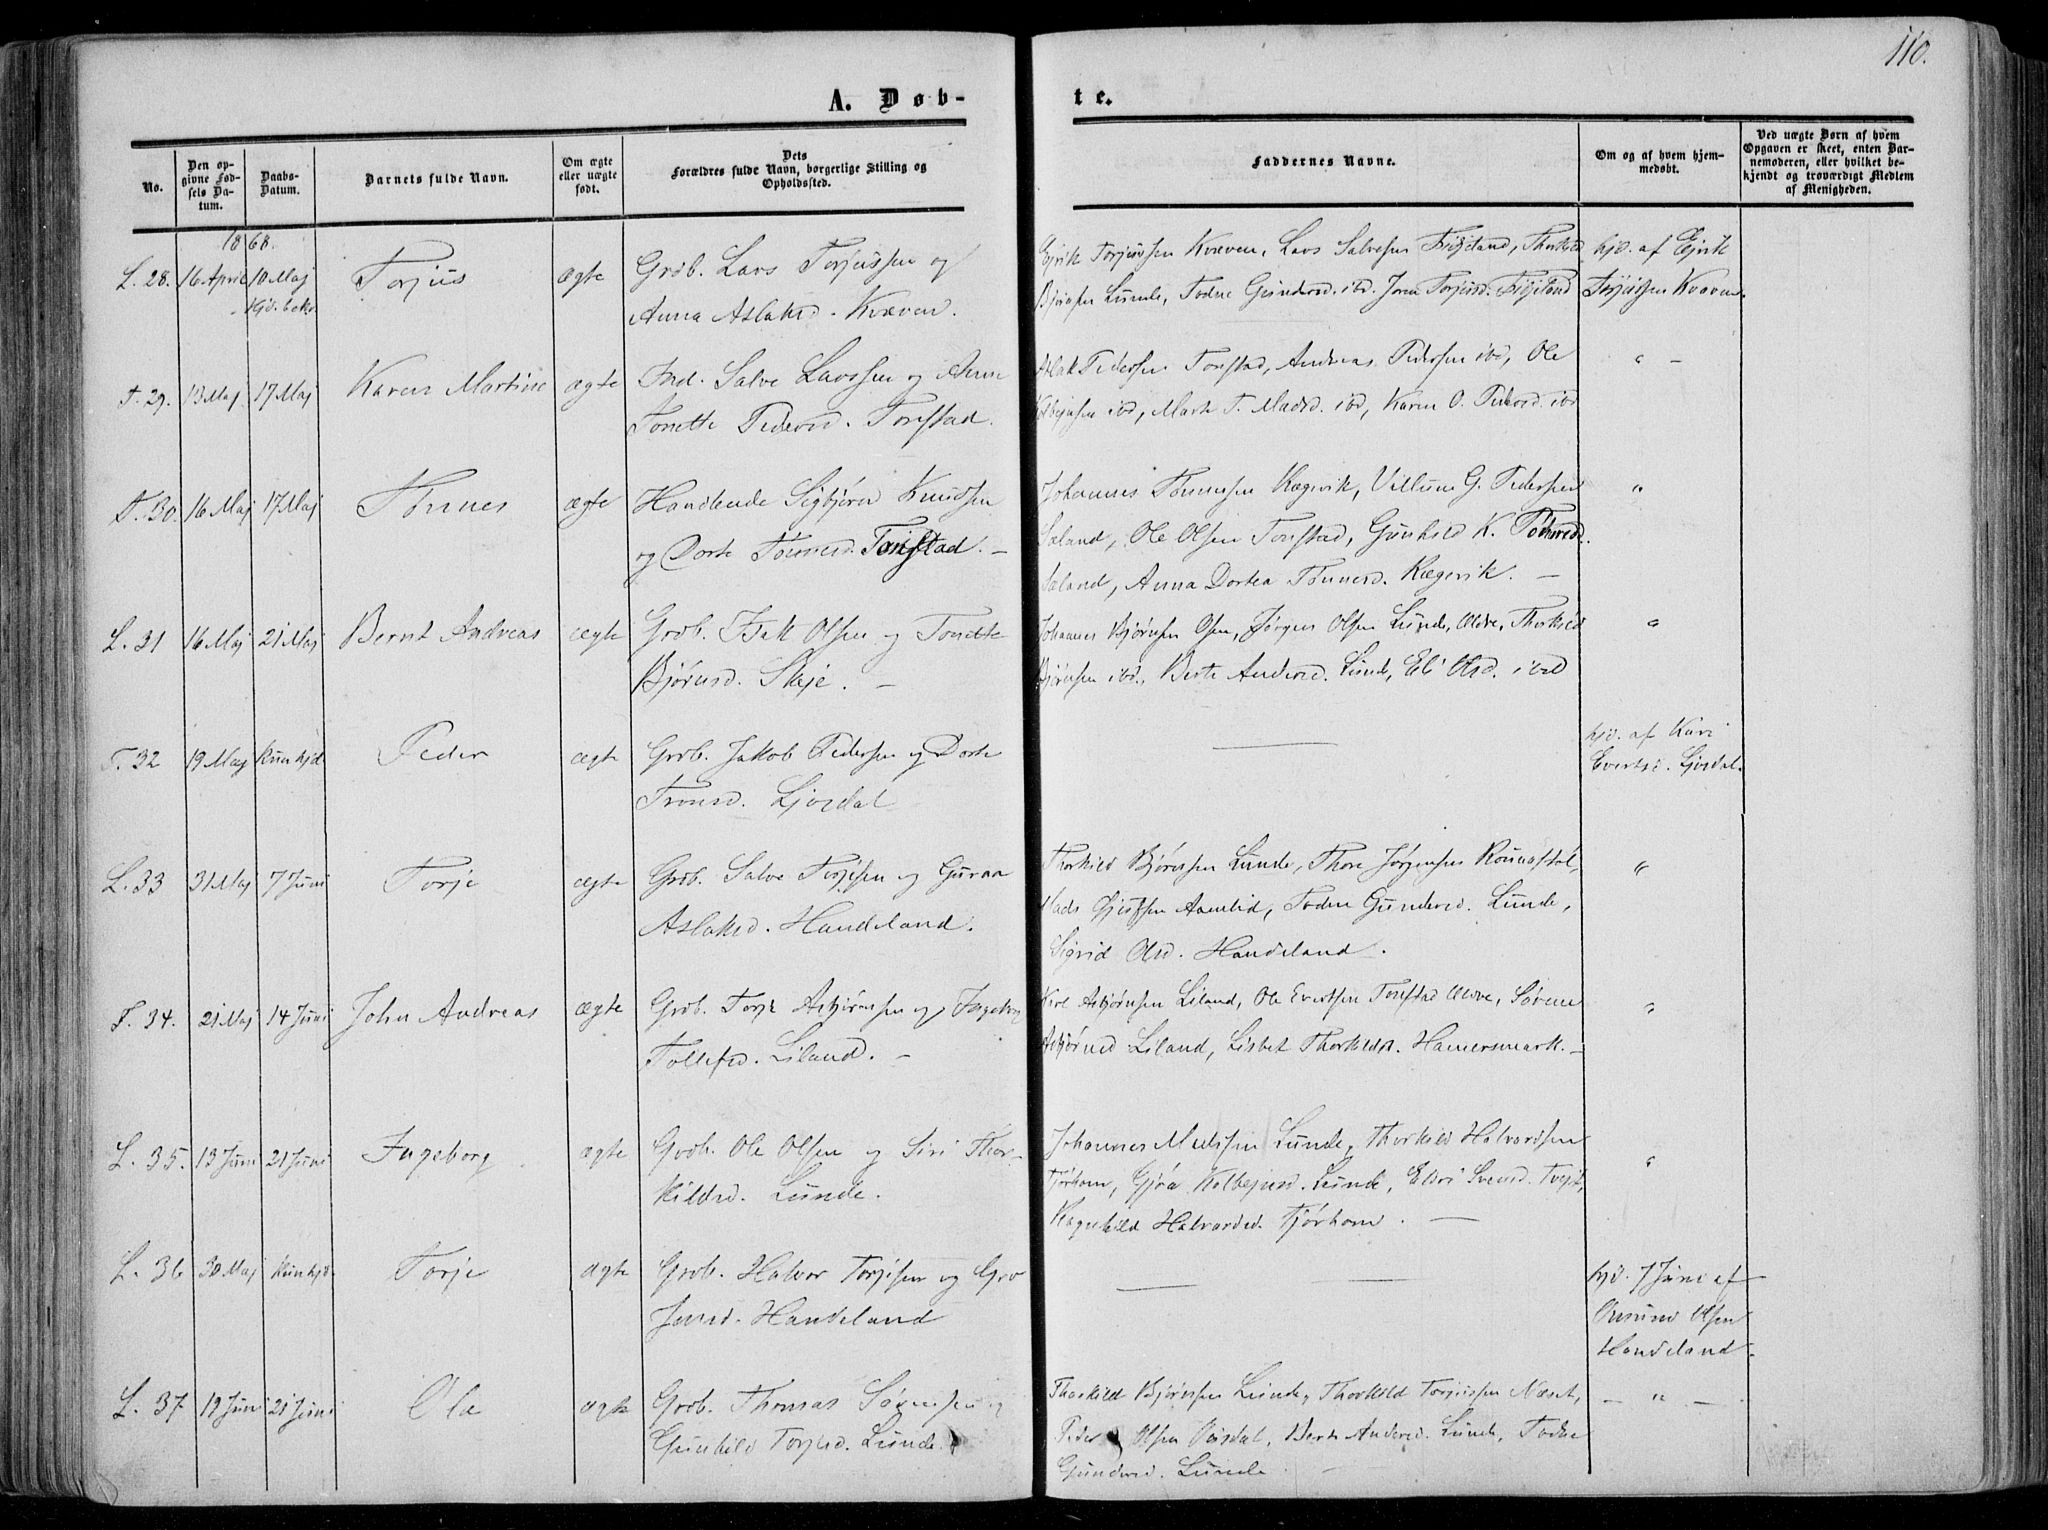 110.
A. Døb-
te.
No.
Den opgivne Fødsels Datum.
Daabs-Datum.
Barnets fulde Navn.
Om ægte eller uægte født.
Dets Forældres fulde Navn, borgerlige Stilling og Opholdssted.
Faddernes Navne.
Om og af hvem hjemmedøbt.
Ved uægte Børn af hvem Opgaven er skeet, enten Barnemoderen, eller hvilket bekjendt og troværdigt Medlem af Menigheden.
1868.
L. 28. 16 April 10 Maj Torjus ægte Grdb. Lars Torjussen og
Hjd. bekr.
Anna Aslaksd. Kvæven.
Ejrik Torjussen Kvæven, Lars Salvesen Fløjeland, Thorkild
Bjørnsen Lunde, Todne Gundersd. ibd. Torjusd. Fløjeland
hjd. af Ejrik
Torjussen Kvæven.
T. 29. 13 Maj 17 Maj Karen Martine ægte Ind. Salve Larssen og Anne
Tonette Pedersd. Tonstad.
Aslak Pedersen Tonstad, Andreas Pedersen ibd, Ole
Kolbejnsen ibd, Marte T. Madsd. ibd, Karen O. Pedersd. ibd
" —
T. 30. 16 Maj 17 Maj Tønnes ægte Handlende Sigbjørn Knudsen
og Dorte Tønnesd. Tonstad. —
Johannes Tønnesen Kægevik, Villum G. Pedersen
Saland, Ole Olsen Tonstad, Gunhild K.
Saland, Anna Dortea Tønnesd. Kægevik. —
"
L. 31 16 Maj 21 Maj Bernt Andreas ægte Grdb. Isak Olsen og Tonette
Bjørnsd. Skeje. —
Johannes Bjørnsen Osen, Jørgen Olsen Lunde, Oldre, Thorkild
Bjørnsen ibd., Berte Andersd. Lunde, Eli Olsd. ibd
"
T. 32 19 Maj kun hjd Peder ægte Grdb. Jakob Pedersen og Dorte
Tronsd. Ljosdal
—
hjd. af Kari
Evertsd. Ljosdal.
L. 33 31 Maj 7 Juni Torje ægte Grdb. Salve Torjesen og Guroa
Aslaksd. Handeland.
Thorkild Bjørnsen Lunde, Thore Jørgensen
Mads Aamlid, Todne Gundersd. Lunde,
Sigrid Olsd. Handeland.
"
T. 34. 21 Maj 14 Juni John Andreas ægte Grdb. Torje Asbjørnsen og Ingeborg
Tollefsd. Liland. —
Asbjørnsen Liland, Ole Evertsen Tonstad Oldre, Sørine
Asbjørnsd Liland, Lisbet Thorkildsd. Hamersmark. —
"
L. 35. 13 Juni 21 Juni Ingeborg ægte Grdb. Ole Olsen og Siri Thor-
kildsd. Lunde.
Johannes Lunde, Thorkild Halvardsen
Tjørhom, Gjøa Kolbejnsd. Lunde, Eldri Svensd. Tvejt,
Ragnhild Halvardsd. Tjørhom. —
"
L. 36 30 Maj kun hjd. Torje ægte Grdb. Halvor Torjesen og Gro
Jonsd. Handeland
— —
hjd. 7 Juni af
Omund Olsen
Handeland.
L. 37 19 Juni 21 Juni Ole ægte Grdb. Thomas Sørensen og
Gunhild Torjusd. Lunde.
Thorkild Bjørnsen Lunde, Thorkild Torjussen Næset,
Peder Olsen Ousdal, Berte Andersd. Lunde, Todne
Gundersd. Lunde. —
— " —